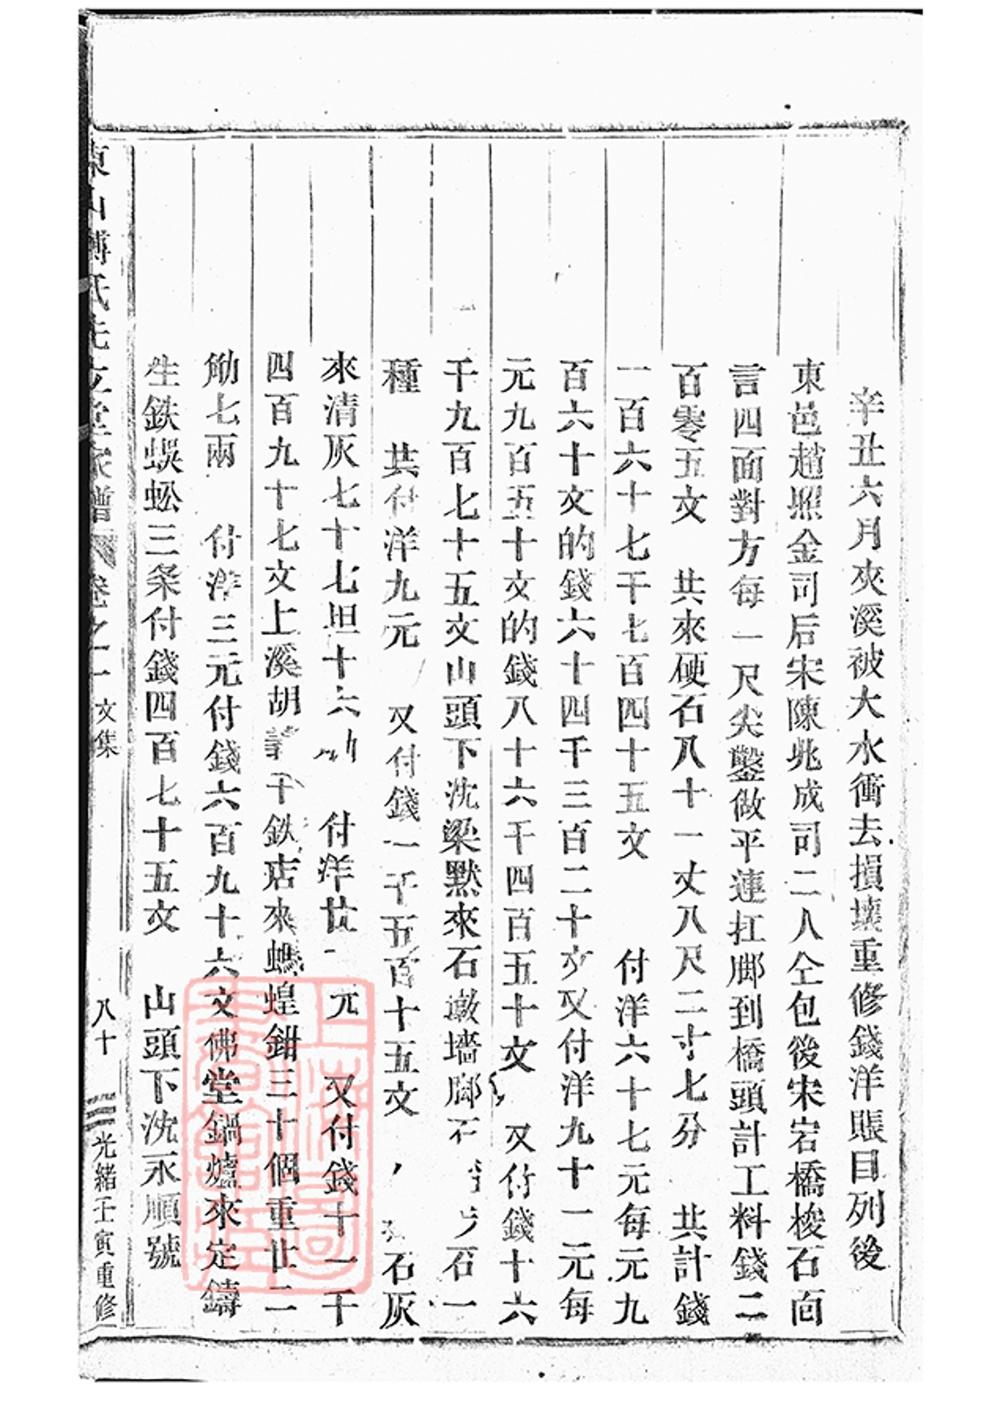 辛丑六月夾溪被大水衝去損壞重修錢洋賬目列後
東邑趙照金司后宋陳兆成司二人仝包後宋宕橋梭石面
言四面對方每一尺尖鑿做平連扛脚到橋頭計工料錢二
百零五文 共來硬石八十一丈八尺二寸七分 共計錢
一百六十七千七百四十五文 付洋六十七元每元九
百六十文的錢六十四千三百二十文又付洋九十一元每
元九百五十文的錢八十六千四百五十文 又付錢十六
千九百七十五文山頭下沈梁默來石墩墻廊石 石一
種 共付洋九元 又付錢一千五百十五文 石灰
來清灰七十七坦十六 付洋廿一元 又付錢十一千
四百九十七文上溪胡 千鉄店來螞蝗鉗三十個重廿二
觔七兩 付洋三元付錢六百九十六文佛堂鍋爐來定鑄
生鉄蜈蚣三条付錢四百七十五文 山頭下沈永順號
東山傅氏先立堂家譜 卷之一 文集 八十 光緒壬寅重修
上海圖書館藏